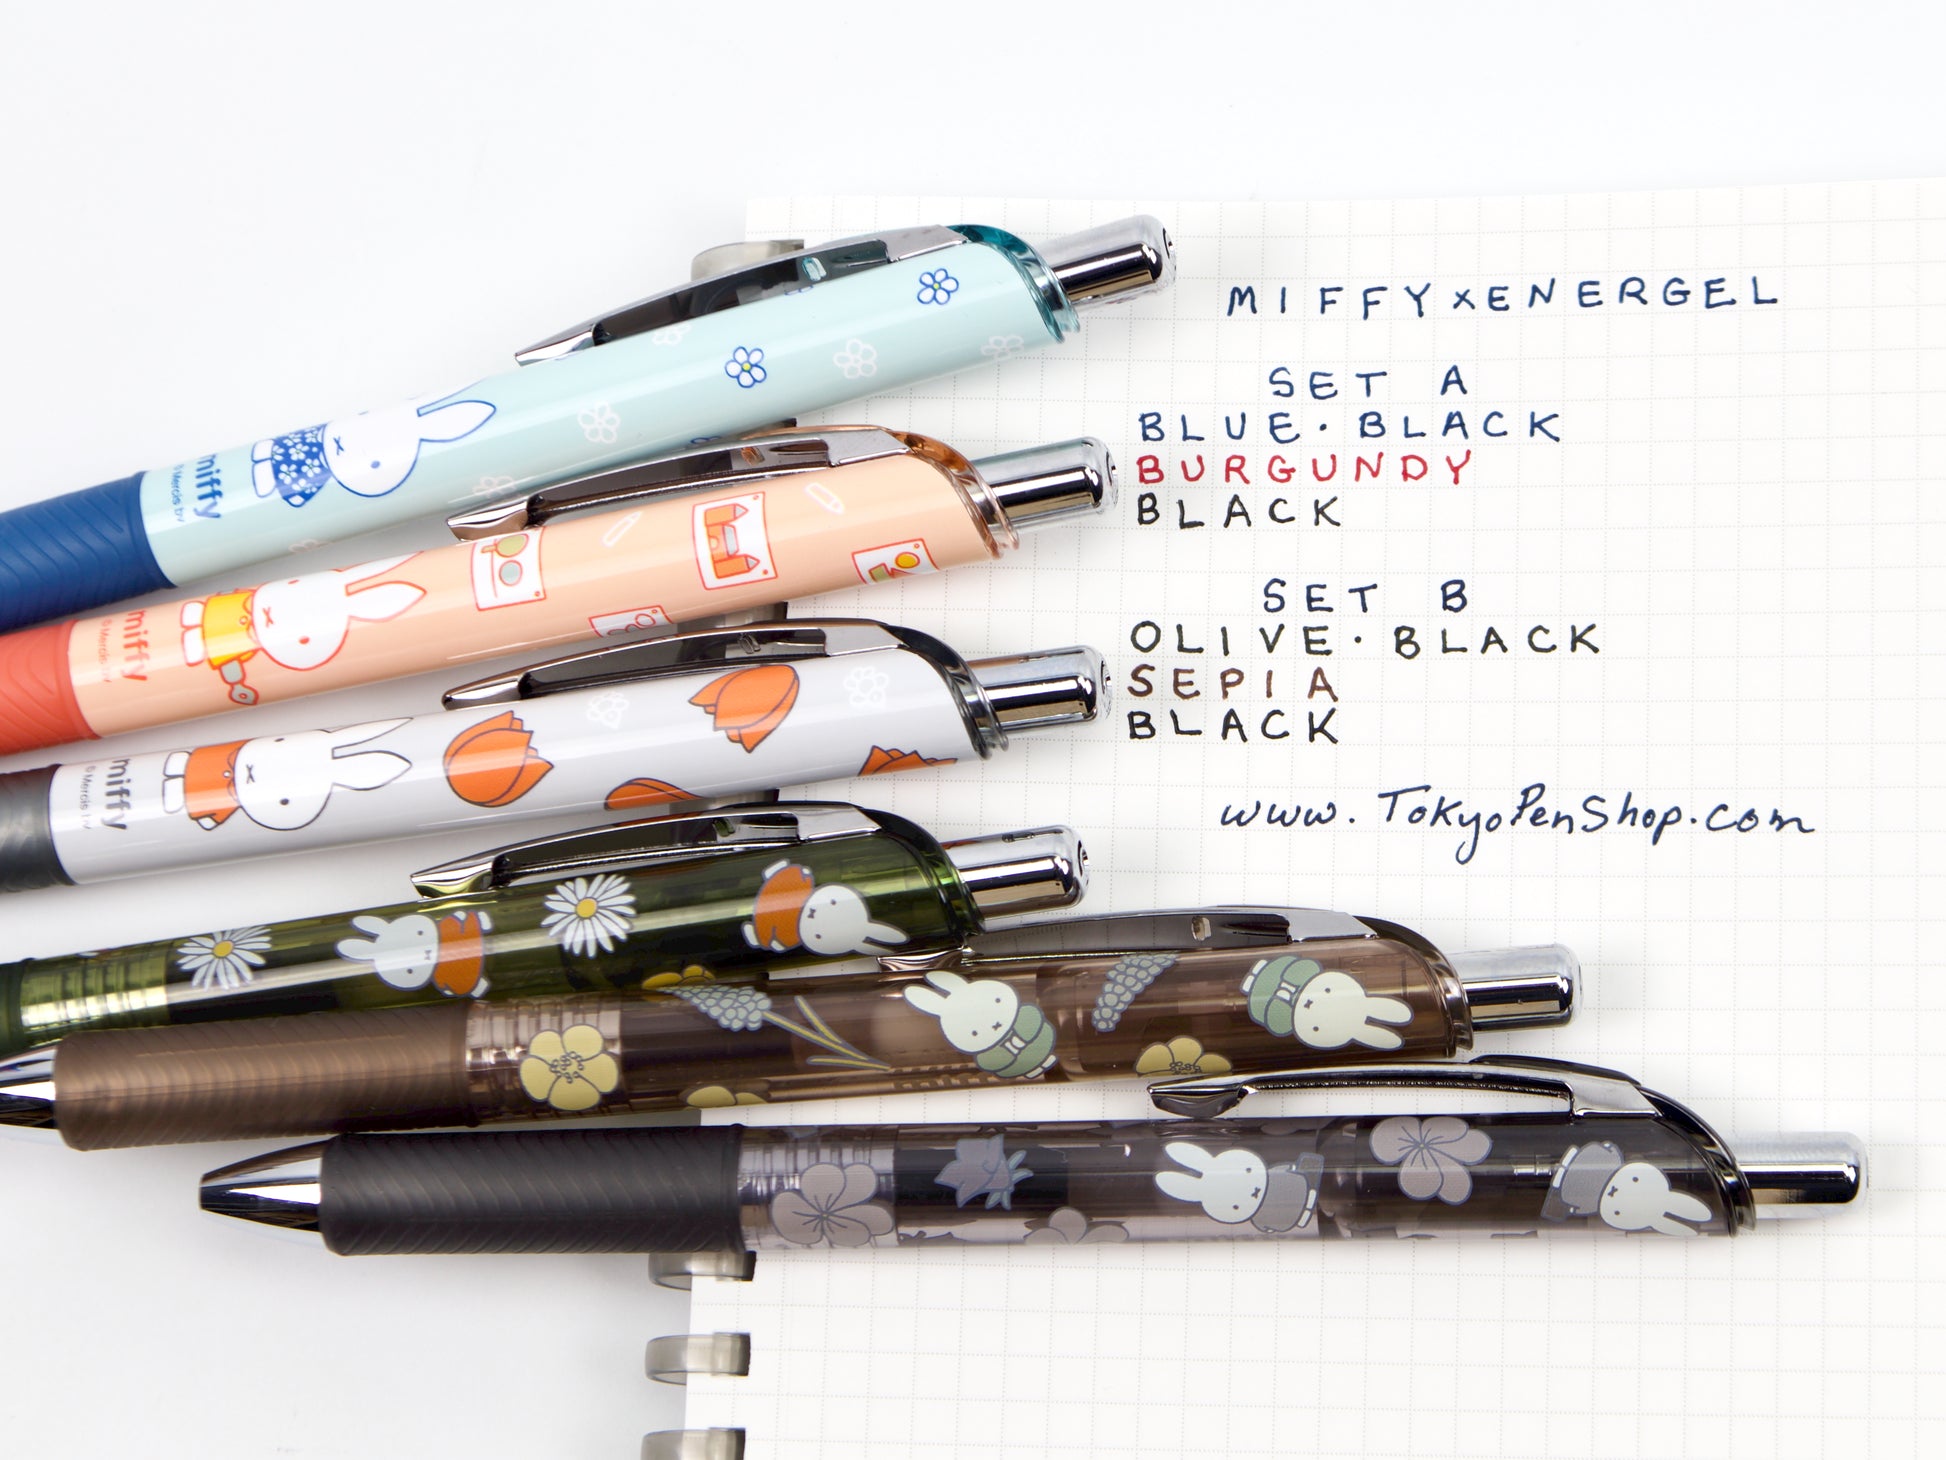 MIFFY x ENERGEL
SET A
BLUE·BLACK
BURGUNDY
BLACK
SET B
OLIVE·BLACK
SEPIA
BLACK
www.TokyoPenShop.com
miffy
© Mercis bv
miffy
© Mercis bv
miffy
© Mercis bv